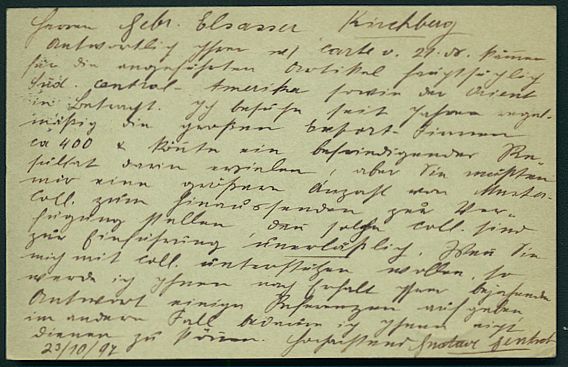 Herren Gebr. Elsasser Kirchberg
Antwortlich Ihrer w/ Carte v. 21. ds. kämen
für die angeführten Artikel hauptsächlich
Süd. Central-Amerika sowie der Orient
in Betracht. Ich besuche seit Jahren regel-
mäßig die großen Export-Firmen
ca 400 & könnte ein befriedigender Re-
sultat darin erzielen, aber Sie müßten
mir eine größere Anzahl von Muster-
Coll. zum hinaussenden zur Ver-
fügung stellen, den solche Coll. sind
zur Einführung unerläßlich. Wenn Sie
mich mit Coll. unterstützen wollen, so
werde ich Ihnen nach Erhalt Ihrer
Antwort einige Referenzen aufgeben,
im andern Fall könnte ich Ihnen nicht
dienen zu können. Hochachtend Gustav
23/10/97